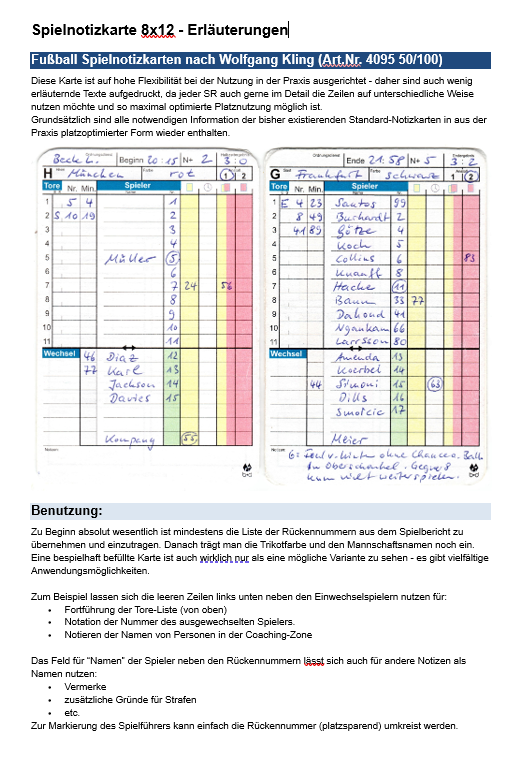 Spielnotizkarte 8x12 - Erläuterungen
Fußball Spielnotizkarten nach Wolfgang Kling (Art.Nr. 4095 50/100)
Diese Karte ist auf hohe Flexibilität bei der Nutzung in der Praxis ausgerichtet - daher sind auch wenig
erläuternde Texte aufgedruckt, da jeder SR auch gerne im Detail die Zeilen auf unterschiedliche Weise
nutzen möchte und so maximal optimierte Platznutzung möglich ist.
Grundsätzlich sind alle notwendigen Information der bisher existierenden Standard-Notizkarten in aus der
Praxis platzoptimierter Form wieder enthalten.
Beginn 20:15 N+ 2 3:0
H München rot 1 2
Tore Nr. Min. Spieler
1 5 4 1
2 S 10 19 2
3 3
4 4
5 Müller 5
6 6
7 7 24 56
8 8
9 9
10 10
11 11
Wechsel 46 Diaz 12
77 Karl 13
Jackson 14
Davies 15
Kompany 53
Notizen:
Ende 21:58 N+ 5 3:2
G Frankfurt Schwarz 1 2
Tore Nr. Min. Spieler
1 E 4 23 Santos 99
2 8 49 Burkardt 2
3 41 89 Götze 4
4 Koch 5
5 Collins 6 83
6 Knauff 8
7 Hacke 11
8 Baum 33 77
9 Dahoud 41
10 Ngankam 66
11 Larsson 80
Wechsel Amenda 13
Koerbel 14
44 Simoni 15 63
Dills 16
Smolcic 17
Meier
Notizen:
6= Foul v. hinten ohne Chance a. Ball
Im Oberschenkel. Gegner 8
kann nicht weiterspielen.
Benutzung:
Zu Beginn absolut wesentlich ist mindestens die Liste der Rückennummern aus dem Spielbericht zu
übernehmen und einzutragen. Danach trägt man die Trikotfarbe und den Mannschaftsnamen noch ein.
Eine bespielhaft befüllte Karte ist auch wirklich nur als eine mögliche Variante zu sehen - es gibt vielfältige
Anwendungsmöglichkeiten.
Zum Beispiel lassen sich die leeren Zeilen links unten neben den Einwechselspielern nutzen für:
• Fortführung der Tore-Liste (von oben)
• Notation der Nummer des ausgewechselten Spielers.
• Notieren der Namen von Personen in der Coaching-Zone
Das Feld für "Namen" der Spieler neben den Rückennummern lässt sich auch für andere Notizen als
Namen nutzen:
• Vermerke
• zusätzliche Gründe für Strafen
• etc.
Zur Markierung des Spielführers kann einfach die Rückennummer (platzsparend) umkreist werden.